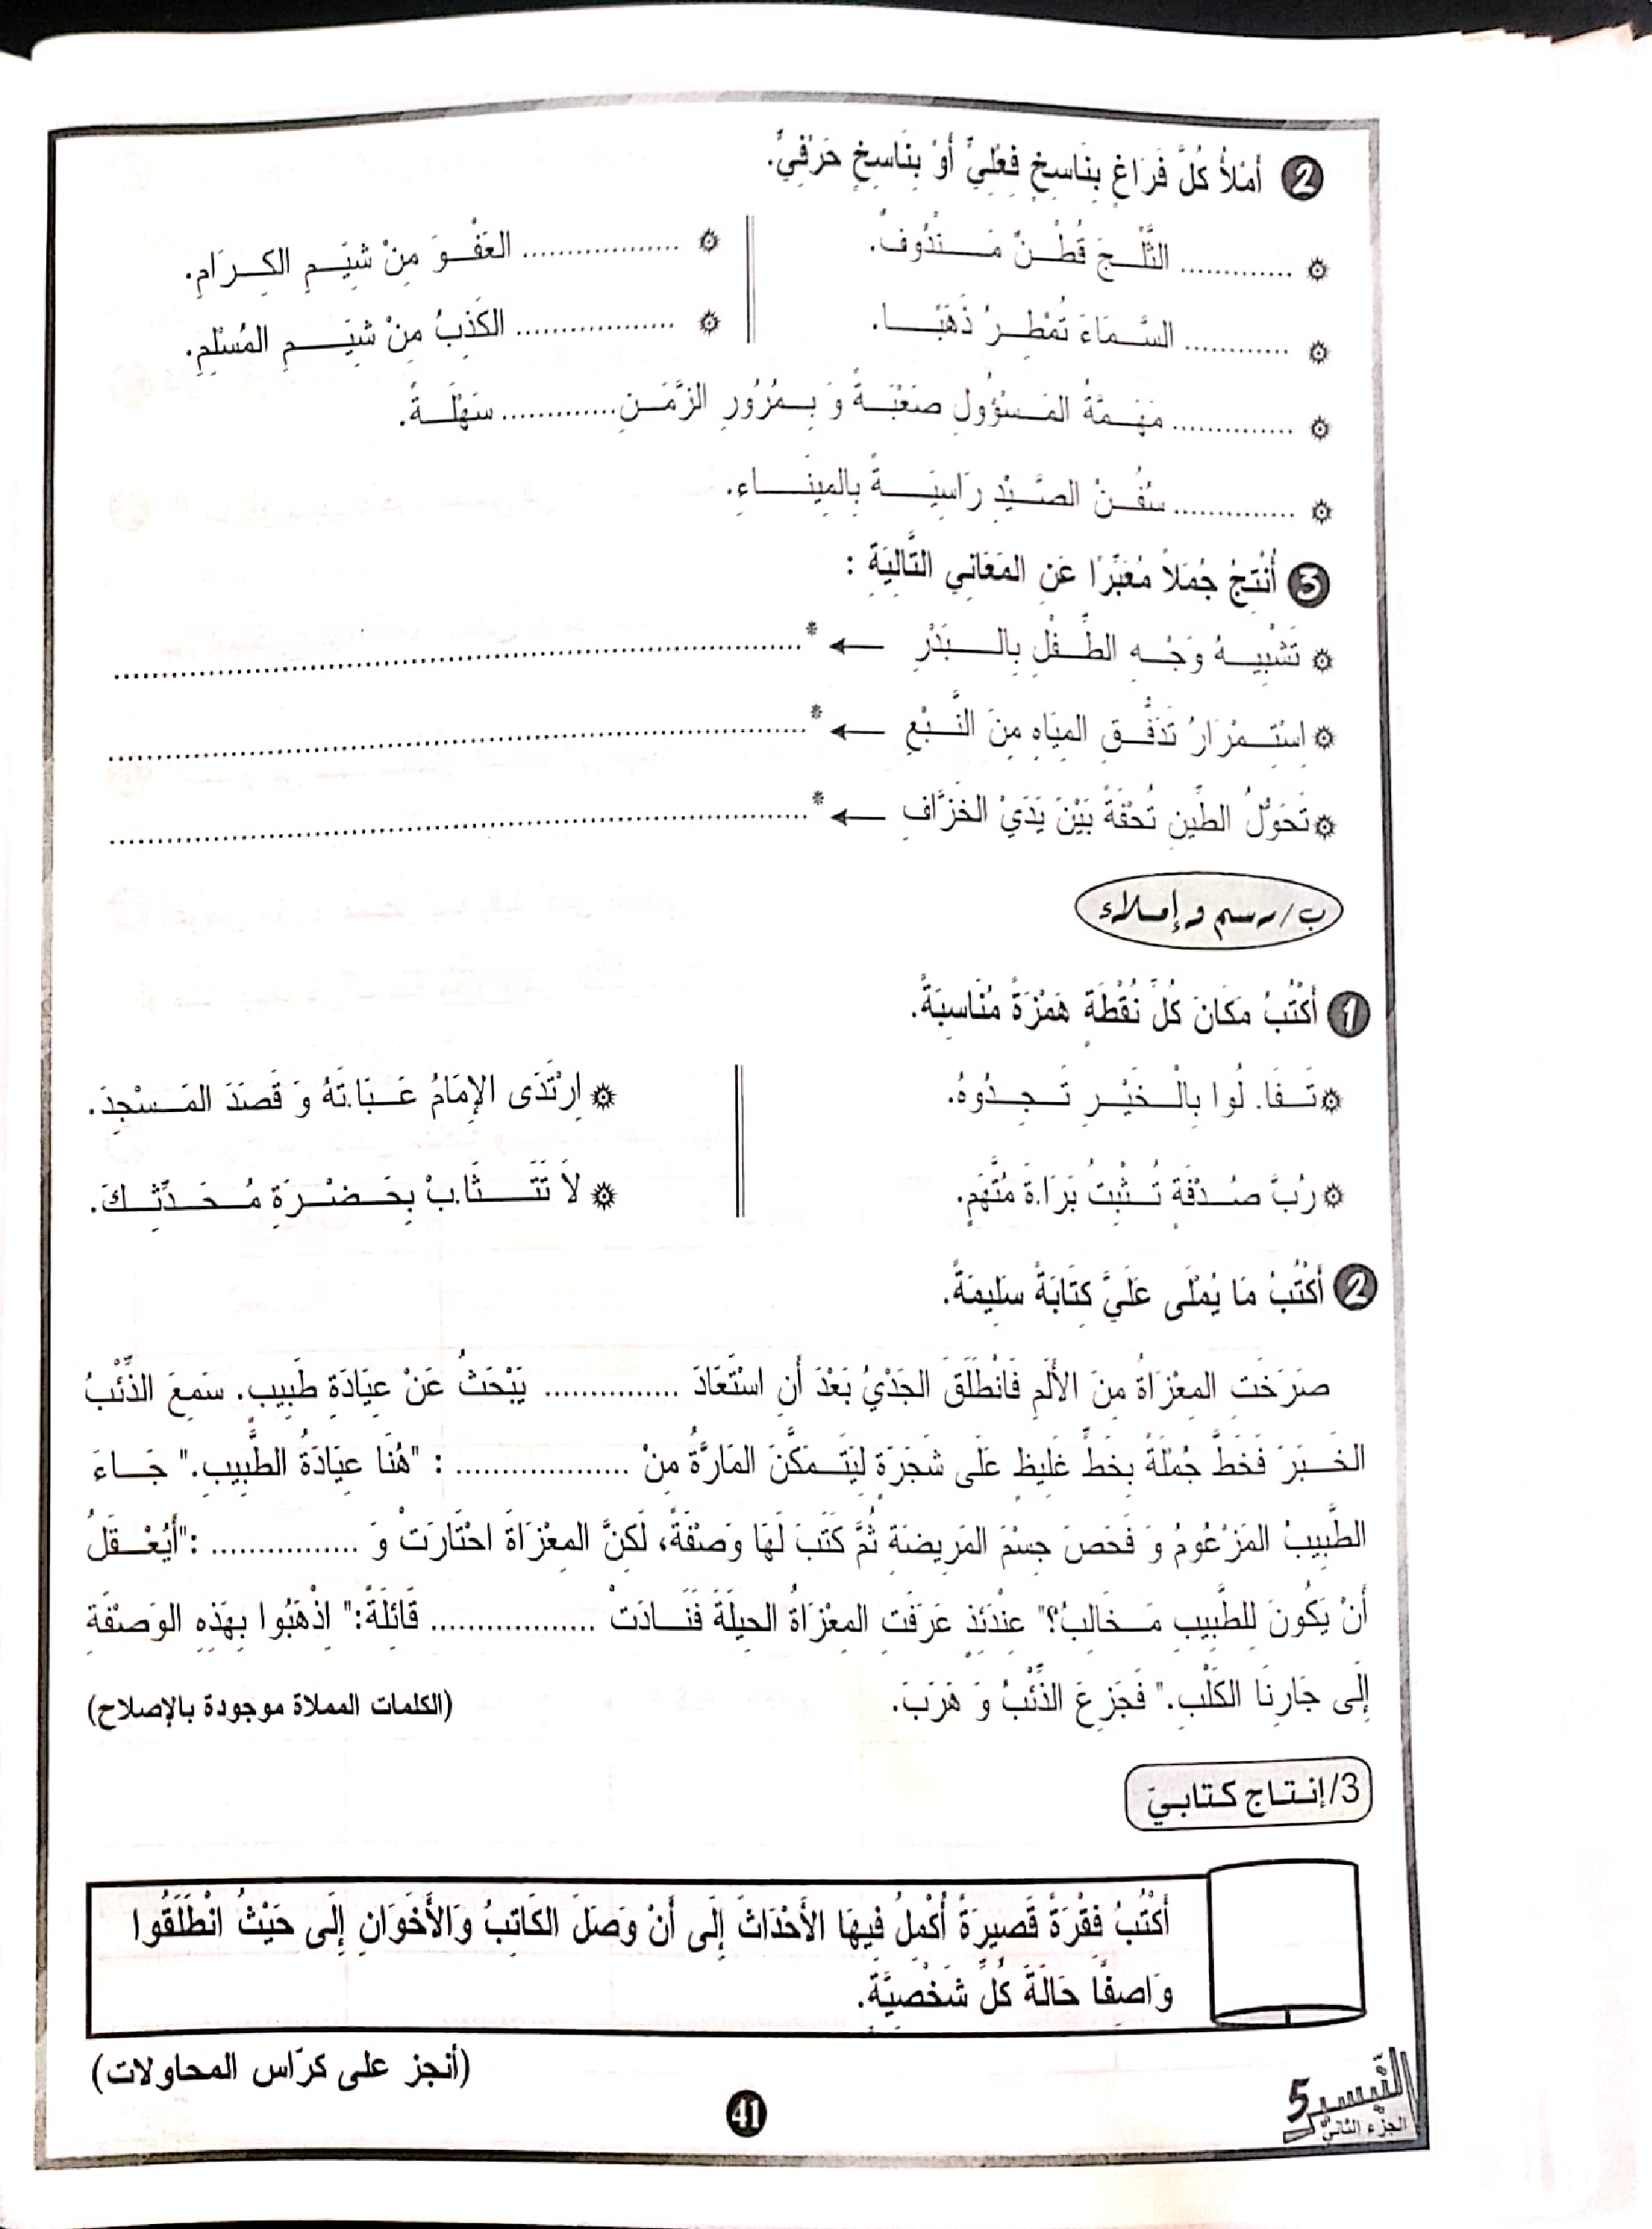 2 أَمْلَأُ كُلَّ فَرَاغٍ بِنَاسِخٍ فِعْلِيٍّ أَوْ بِنَاسِخٍ حَرْفِيٍّ.
............. الثَّلْجَ قُطْنٌ مَنْدُوفٌ.
.................. العَفْوَ مِنْ شِيَمِ الكِرَامِ.
............ السَّمَاءَ تُمْطِرُ ذَهَبًا.
.................. الكَذِبُ مِنْ شِيَمِ المُسْلِمِ.
.............. مَهَمَّةُ المَسْؤُولِ صَعْبَةً وَ بِمُرُورِ الزَّمَنِ ............. سَهْلَةً.
.............. سُفُنُ الصَّيْدِ رَاسِيَةً بِالمِينَاءِ.
3 أُنْتِجُ جُمَلاً مُعَبِّرًا عَنِ المَعَانِي التَّالِيَةِ :
تَشْبِيهُ وَجْهِ الطِّفْلِ بِالبَدْرِ ← *........................................
اِسْتِمْرَارُ تَدَفُّقِ المِيَاهِ مِنَ النَّبْعِ ← *........................................
تَحَوُّلُ الطِّينِ تُحْفَةً بَيْنَ يَدَيْ الخَزَّافِ ← *........................................
ب/رسم وإملاء
1 أَكْتُبُ مَكَانَ كُلِّ نُقْطَةٍ هَمْزَةً مُنَاسِبَةً.
تَفَا.لُوا بِالْخَيْرِ تَجِدُوهُ.
اِرْتَدَى الإِمَامُ عَبَا.تَهُ وَ قَصَدَ المَسْجِدَ.
رُبَّ صُدْفَةٍ تُثْبِتُ بَرَا.ةَ مُتَّهَمٍ.
لاَ تَتَثَا.بْ بِحَضْرَةِ مُحَدِّثِكَ.
2 أَكْتُبُ مَا يُمْلَى عَلَيَّ كِتَابَةً سَلِيمَةً.
صَرَخَتِ المِعْزَاةُ مِنَ الأَلَمِ فَانْطَلَقَ الجَدْيُ بَعْدَ أَنِ اسْتَعَادَ ............... يَبْحَثُ عَنْ عِيَادَةِ طَبِيبٍ. سَمِعَ الذِّئْبُ
الخَبَرَ فَخَطَّ جُمْلَةً بِخَطٍّ غَلِيظٍ عَلَى شَجَرَةٍ لِيَتَمَكَّنَ المَارَّةُ مِنْ .................... : "هُنَا عِيَادَةُ الطَّبِيبِ." جَاءَ
الطَّبِيبُ المَزْعُومُ وَ فَحَصَ جِسْمَ المَرِيضَةِ ثُمَّ كَتَبَ لَهَا وَصْفَةً، لَكِنَّ المِعْزَاةَ احْتَارَتْ وَ ................ :"أَيُعْقَلُ
أَنْ يَكُونَ لِلطَّبِيبِ مَخَالِبُ؟" عِنْدَئِذٍ عَرَفَتِ المِعْزَاةُ الحِيلَةَ فَنَادَتْ .................. قَائِلَةً:" اِذْهَبُوا بِهَذِهِ الوَصْفَةِ
إِلَى جَارِنَا الكَلْبِ." فَجَزِعَ الذِّئْبُ وَ هَرَبَ.
(الكلمات المملاة موجودة بالإصلاح)
3/إنتاج كتابيّ
أَكْتُبُ فِقْرَةً قَصِيرَةً أُكْمِلُ فِيهَا الأَحْدَاثَ إِلَى أَنْ وَصَلَ الكَاتِبُ وَالأَخَوَانِ إِلَى حَيْثُ انْطَلَقُوا
وَاصِفًا حَالَةَ كُلِّ شَخْصِيَّةٍ.
(أنجز على كرّاس المحاولات)
41
التّيسير 5
الجزء الثّاني